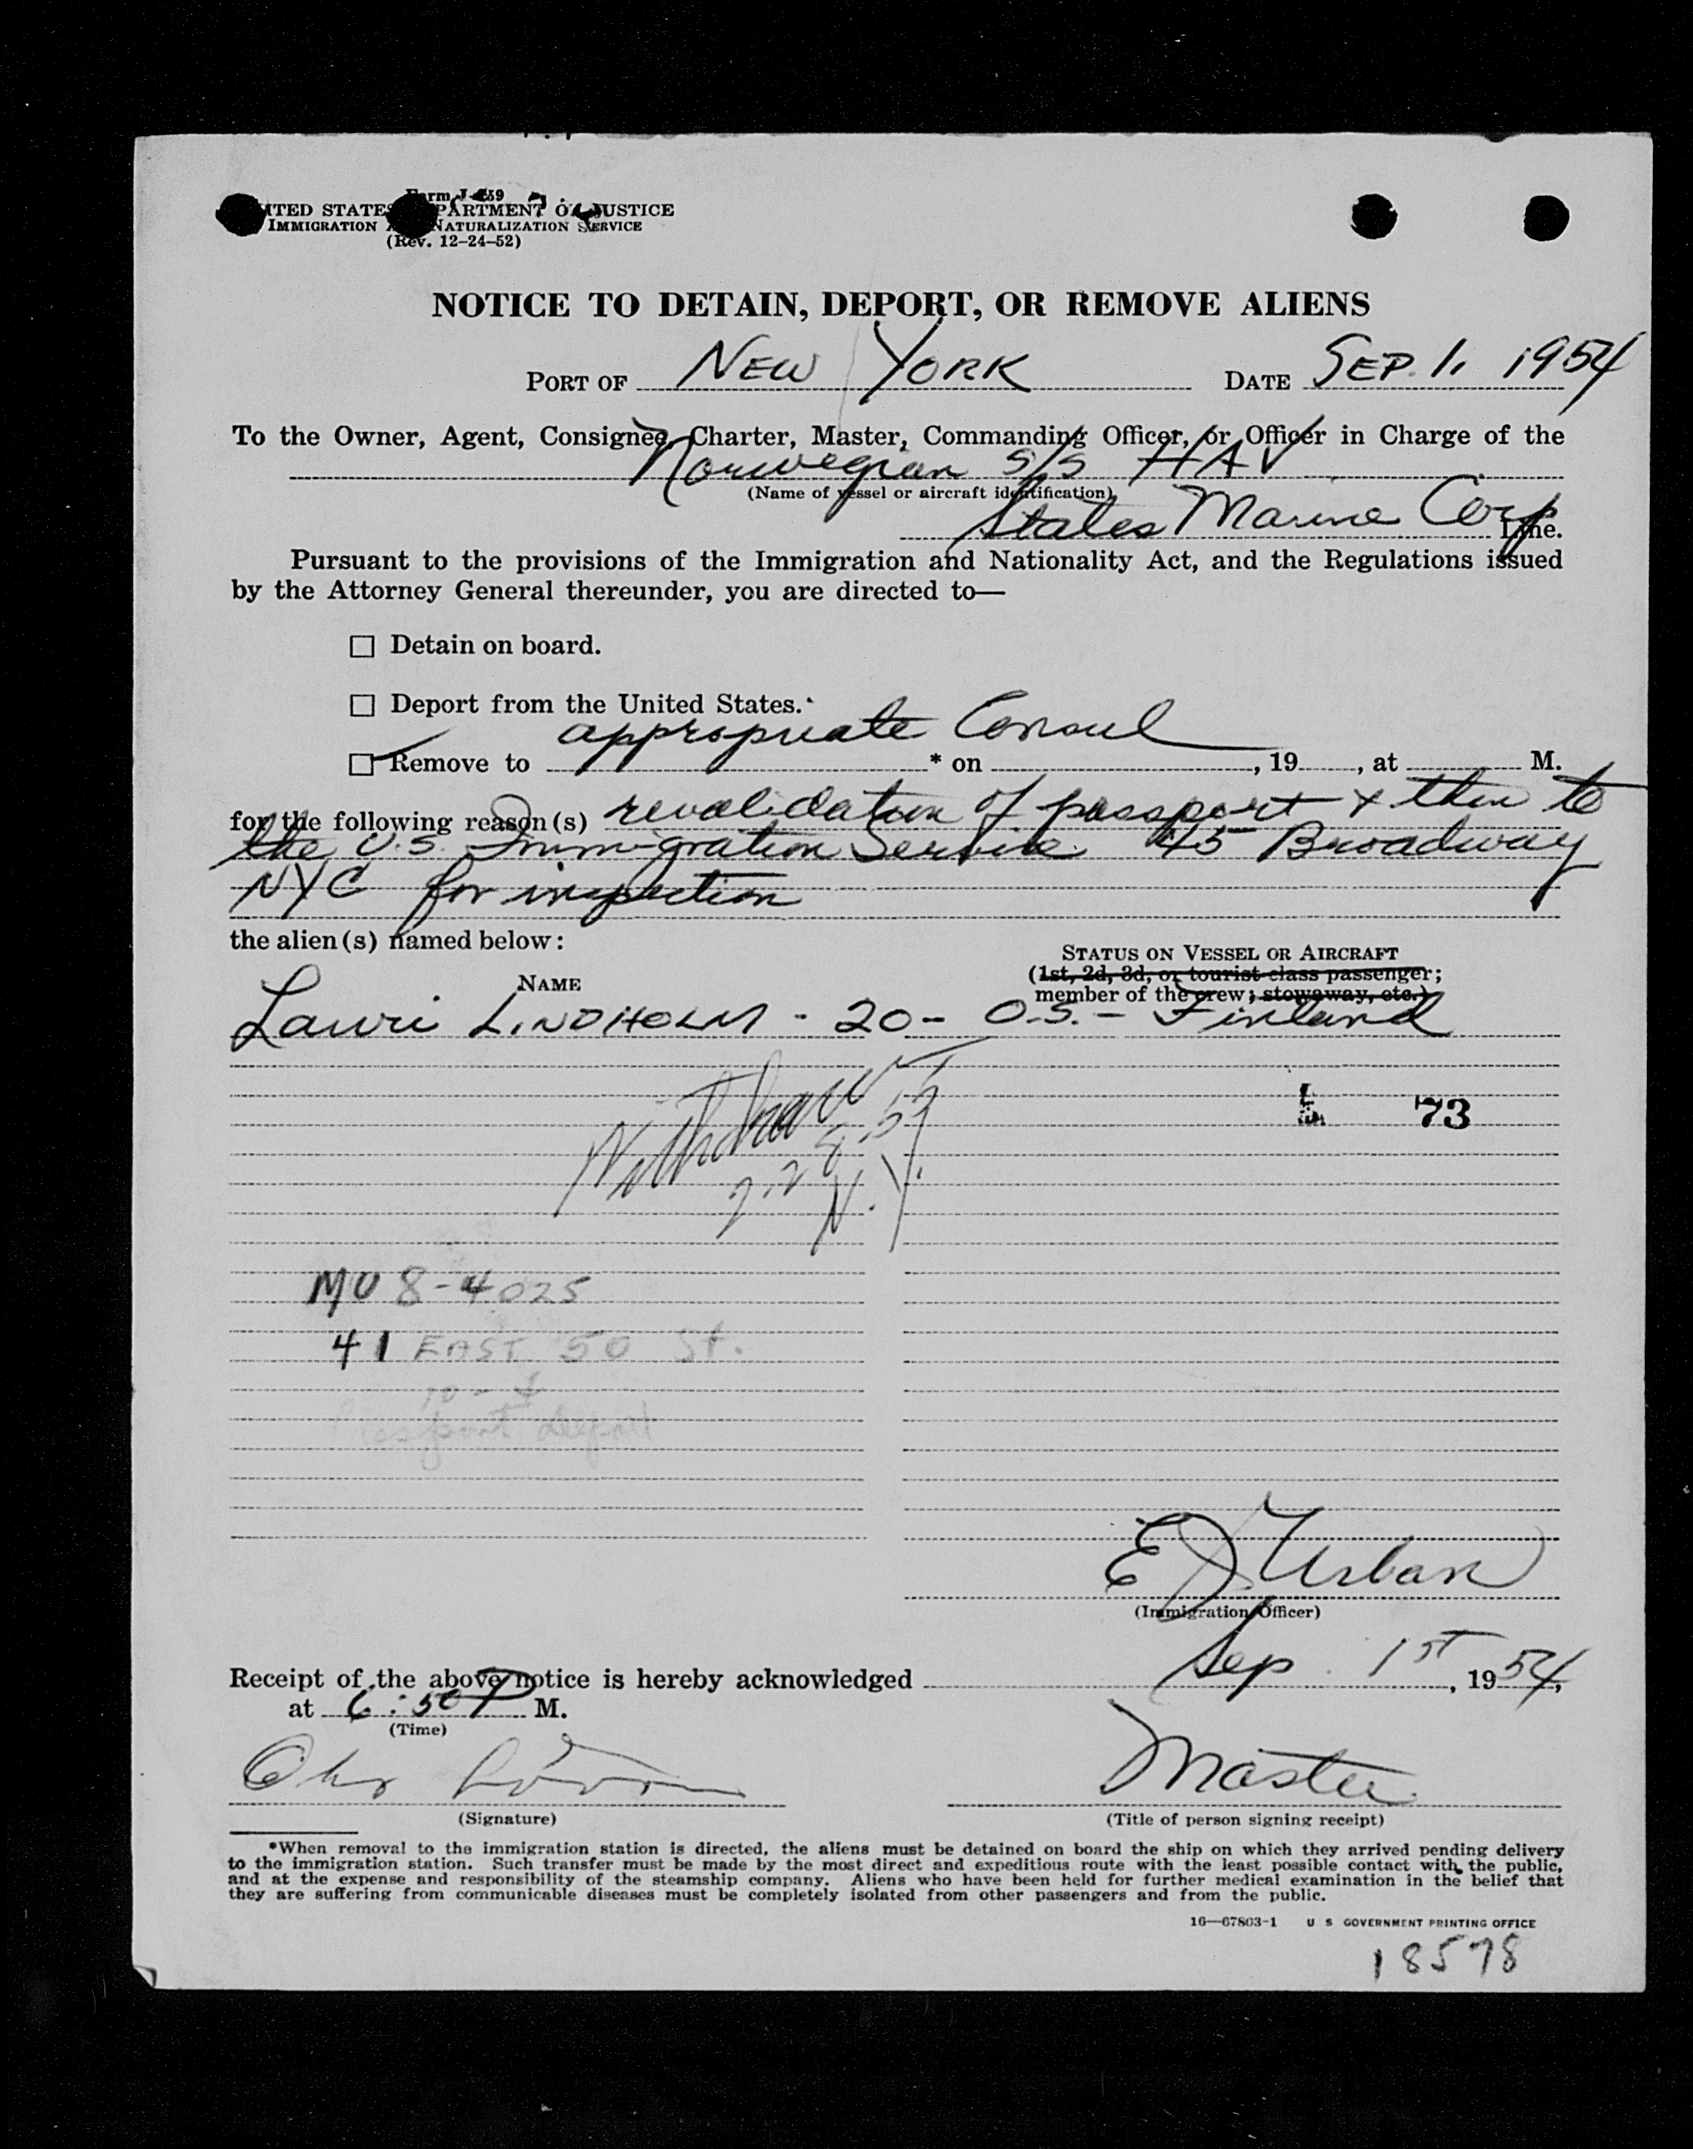 Form I-259
UNITED STATES DEPARTMENT OF JUSTICE
IMMIGRATION AND NATURALIZATION SERVICE
(Rev. 12-24-52)
NOTICE TO DETAIN, DEPORT, OR REMOVE ALIENS
PORT OF NEW YORK DATE SEP. 1, 1954
To the Owner, Agent, Consignee, Charter, Master, Commanding Officer, or Officer in Charge of the
Norwegian S/S HAV
(Name of vessel or aircraft identification)
States Marine Corp Line.
Pursuant to the provisions of the Immigration and Nationality Act, and the Regulations issued
by the Attorney General thereunder, you are directed to—
☐ Detain on board.
☐ Deport from the United States.
☐ Remove to appropriate Consul * on , 19 , at M.
for the following reason(s) revalidation of passport + then to
the U.S. Immigration Service 45 Broadway
NYC for inspection
the alien(s) named below:
STATUS ON VESSEL OR AIRCRAFT
NAME (1st, 2d, 3d, or tourist class passenger;
member of the crew; stowaway, etc.)
Lauri LINDHOLM - 20 - O.S. - Finland
Withdrawn
73
N.Y.
MU 8-4025
41 EAST 50 St.
10 - 4
E J Urban
(Immigration Officer)
Receipt of the above notice is hereby acknowledged Sep. 1st, 1954,
at 6:50 P M.
(Time)
Master
(Signature) (Title of person signing receipt)
*When removal to the immigration station is directed, the aliens must be detained on board the ship on which they arrived pending delivery
to the immigration station. Such transfer must be made by the most direct and expeditious route with the least possible contact with the public,
and at the expense and responsibility of the steamship company. Aliens who have been held for further medical examination in the belief that
they are suffering from communicable diseases must be completely isolated from other passengers and from the public.
16—67803-1 U S GOVERNMENT PRINTING OFFICE
18578